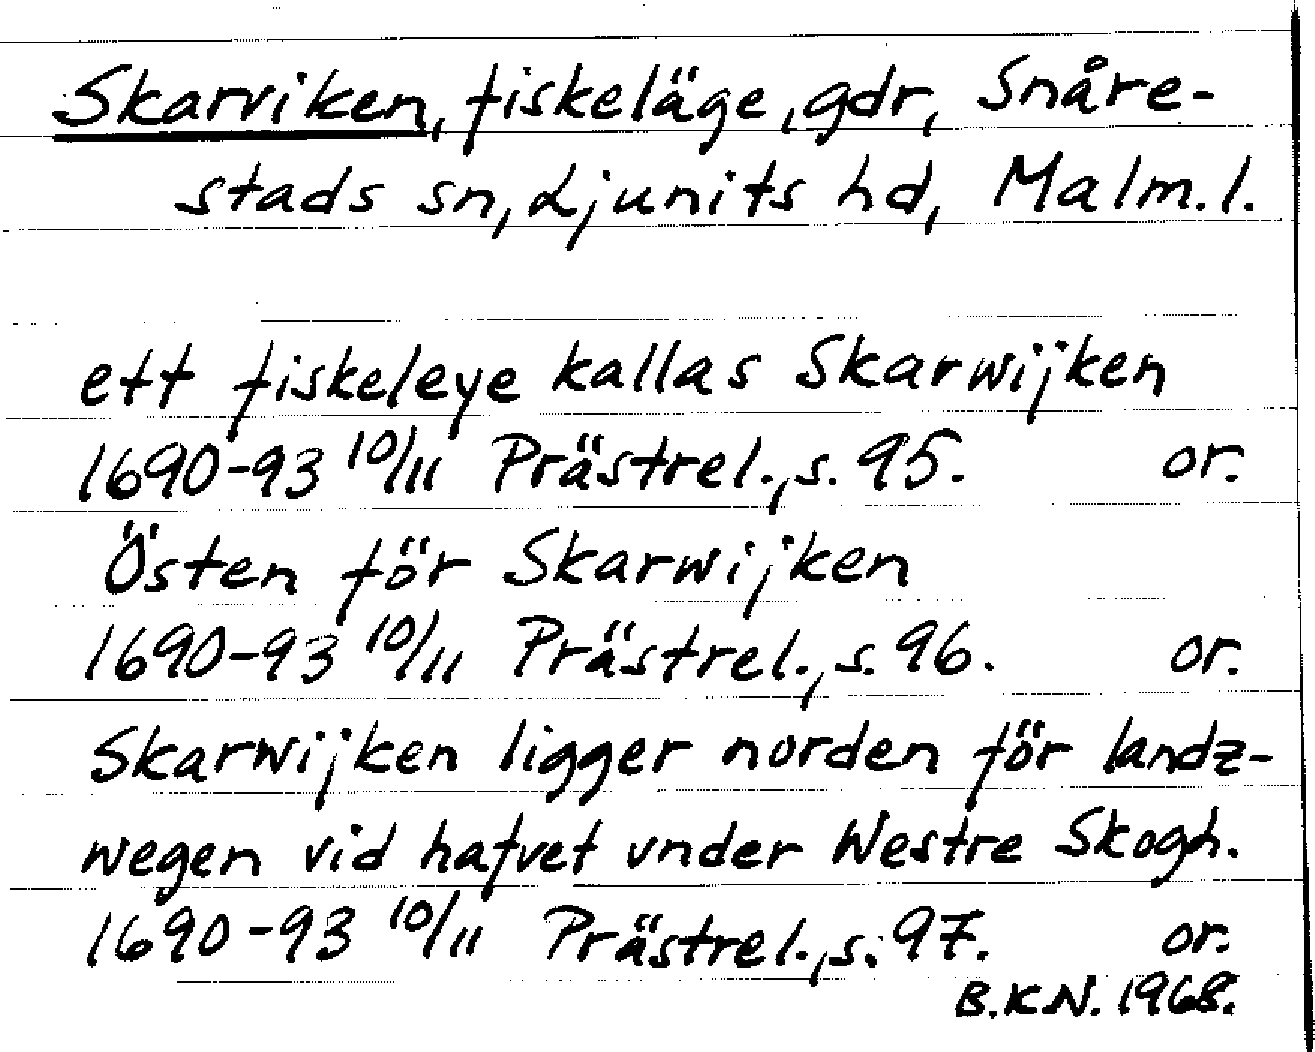 Skarviken, fiskeläge, gdr, Snåre-
stads sn, Ljunits hd, Malm. l.
ett fiskeleye kallas Skarwijken
1690-93 10/11 Prästrel., s. 95. or.
Östen för Skarwijken
1690-93 10/11 Prästrel., s. 96. or.
Skarwijken ligger norden för landz-
wegen vid hafvet vnder Westre Skogh.
1690-93 10/11 Prästrel., s. 97. or.
B.K.N. 1968.